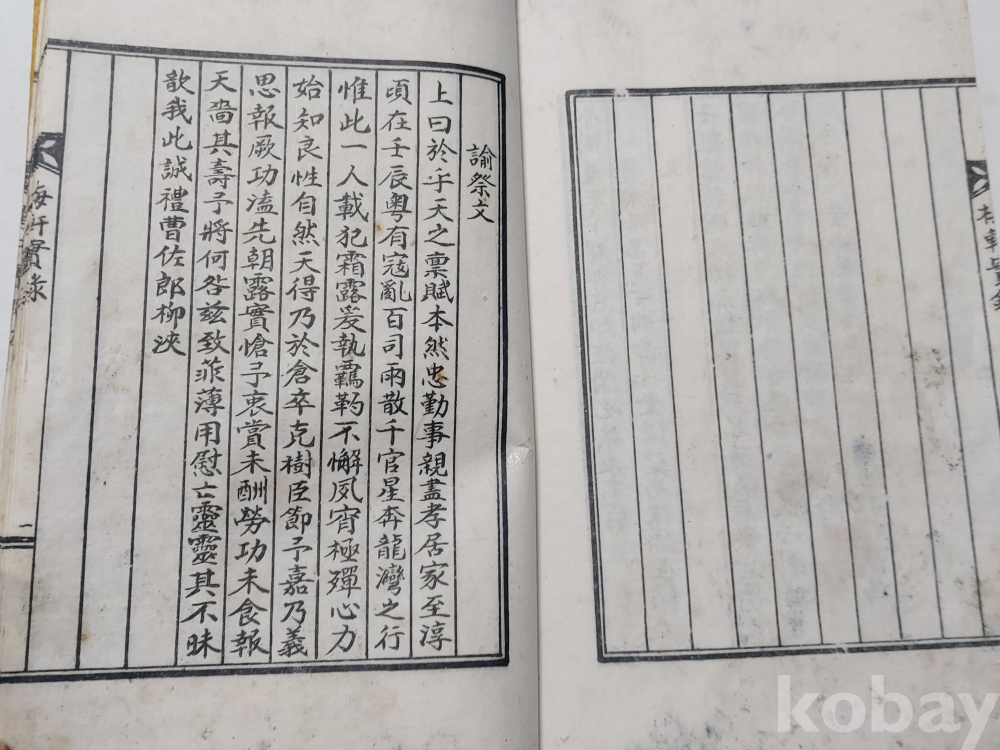 諭祭文
上曰於乎天之禀賦本然忠勤事親盡孝居家至淳
頃在壬辰粤有寇亂百司雨散千官星奔龍灣之行
惟此一人載犯霜露爰執羈靮不懈夙宵極殫心力
始知良性自然天得乃於倉卒克樹臣節予嘉乃義
思報厥功溘先朝露實愴予衷賞未酬勞功未食報
天嗇其壽予將何咎玆致菲薄用慰亡靈靈其不昧
歆我此誠禮曹佐郎柳浹
軒實录
一
kobay